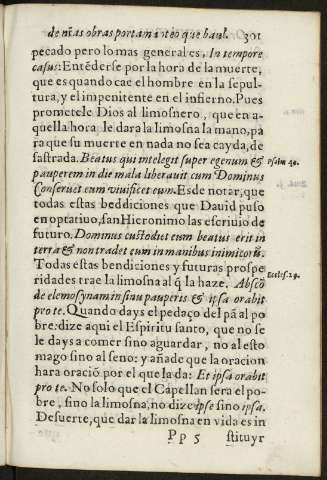 de nr̃as obras portam i teo que habl. 301
pecado pero lo mas general es, In tempore
casus: Entẽderse por la hora de la muerte,
que es quando cae el hombre en la sepul-
tura, y el impenitente en el infierno. Pues
promete le Dios al limosnero, que en a-
quella hora le dara la limosna la mano, pa
ra que su muerte en nada no sea cayda, de
sastrada. Beatus qui intelegit super egenum & Psalm 40.
pauperem in die mala liberauit eum Dominus
Conseruet eum viuificet eum. Es de notar, que
todas estas beddiciones que Dauid puso
en optatiuo, san Hieronimo las escriuio de
futuro. Dominus custodiet eum beatus erit in
terra & non tradet eum in manibus inimicorũ.
Todas estas bendiciones y futuras prospe
ridades trae la limosna al q̃ la haze. Absco Eccles. 29.
de elemosynam in sinu pauperis & ipsa orabit
pro te. Quando days el pedaço del pã al po
bre: dize aqui el Espiritu santo, que no se
le days a comer sino aguardar, no al esto
mago sino al seno: y añade que la oracion
hara oracio por el que la da: Et ipsa orabit
pro te. No solo que el Capellan sera el po-
bre, sino la limosna, no dize ipse sino ipsa.
De suerte, que dar la limosna en vida es in
P p 5 stituyr